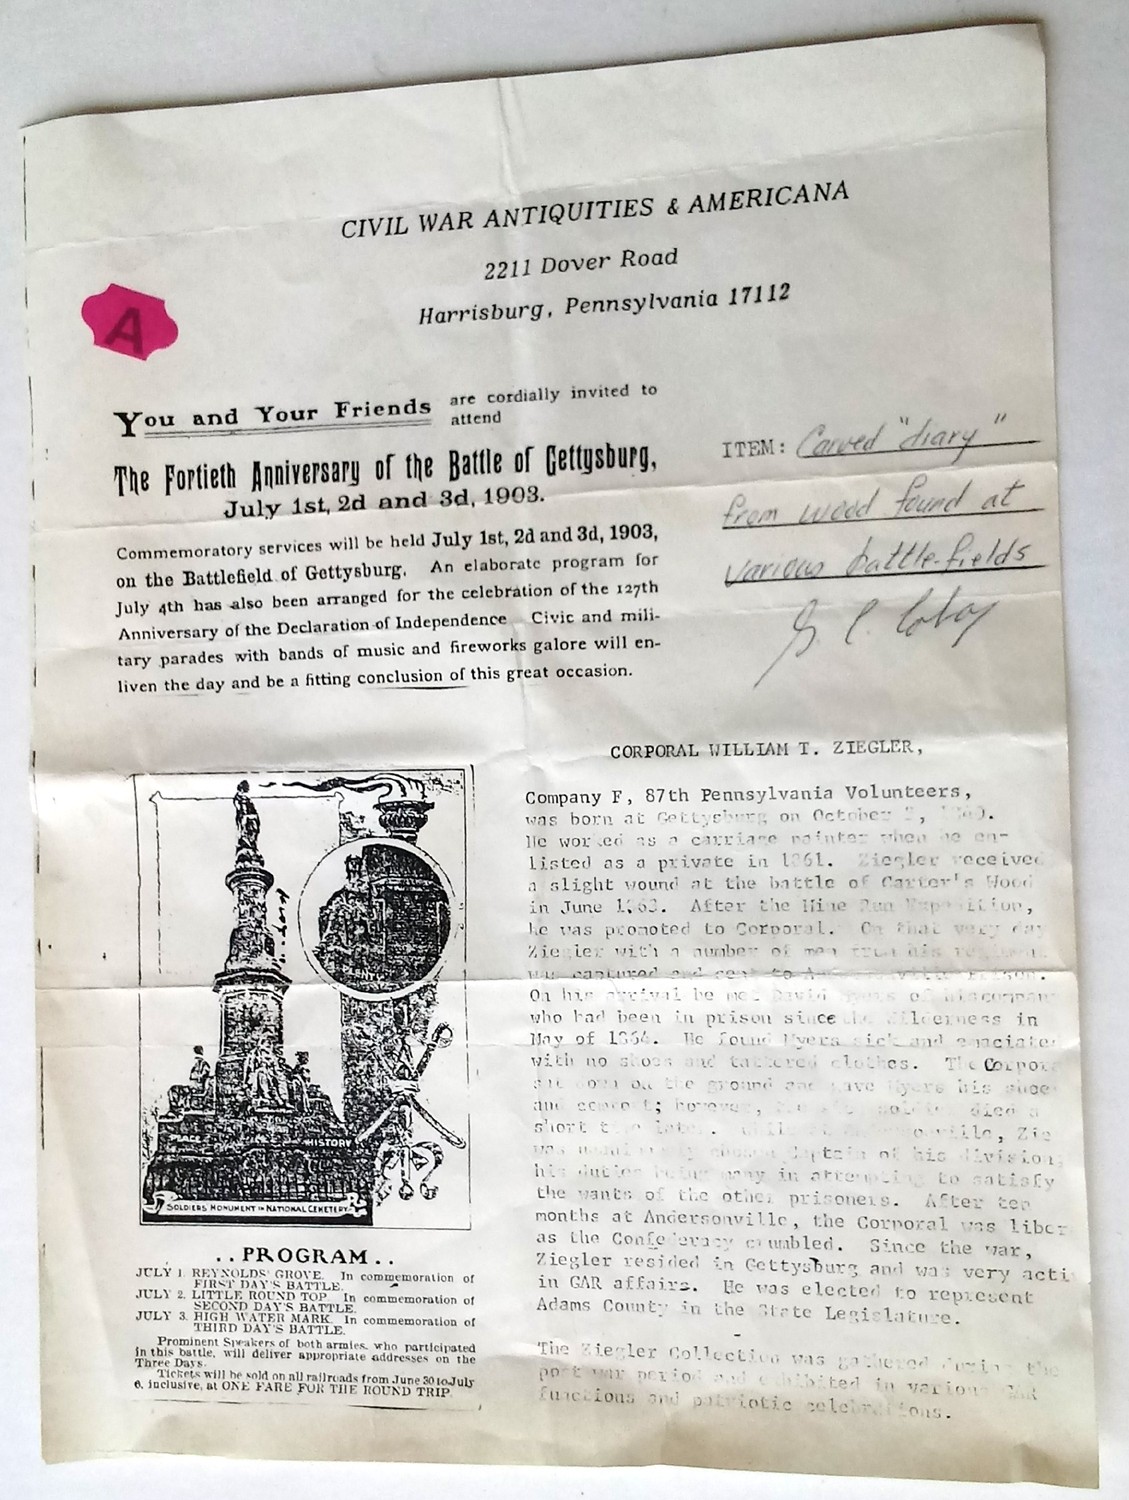 CIVIL WAR ANTIQUITIES & AMERICANA
2211 Dover Road
Harrisburg, Pennsylvania 17112
A
You and Your Friends are cordially invited to
attend
The Fortieth Anniversary of the Battle of Gettysburg,
July 1st, 2d and 3d, 1903.
Commemoratory services will be held July 1st, 2d and 3d, 1903,
on the Battlefield of Gettysburg. An elaborate program for
July 4th has also been arranged for the celebration of the 127th
Anniversary of the Declaration of Independence Civic and mili-
tary parades with bands of music and fireworks galore will en-
liven the day and be a fitting conclusion of this great occasion.
ITEM: Carved "diary"
from wood found at
various battle-fields
PLENTY
PEACE HISTORY
SOLDIERS' MONUMENT IN NATIONAL CEMETERY
..PROGRAM..
JULY 1. REYNOLDS' GROVE. In commemoration of
FIRST DAY'S BATTLE.
JULY 2. LITTLE ROUND TOP. In commemoration of
SECOND DAY'S BATTLE.
JULY 3. HIGH WATER MARK. In commemoration of
THIRD DAY'S BATTLE.
Prominent Speakers of both armies, who participated
in this battle, will deliver appropriate addresses on the
Three Days.
Tickets will be sold on all railroads from June 30 to July
6, inclusive, at ONE FARE FOR THE ROUND TRIP.
CORPORAL WILLIAM T. ZIEGLER,
Company F, 87th Pennsylvania Volunteers,
was born at Gettysburg on October
He worked as a carriage painter when he en-
listed as a private in 1861. Ziegler received
a slight wound at the battle of Carter's Wood
in June 1863. After the Mine Run Expedition,
he was promoted to Corporal. On that very day
Ziegler with a number of men from his regiment
was captured and sent to Andersonville Prison.
On his arrival he met David Myers of his company
who had been in prison since the Wilderness in
May of 1864. He found Myers sick and emaciated
with no shoes and tattered clothes. The Corpor
sat down on the ground and gave Myers his shoe
and comfort; however, died a
short time later. While at Andersonville, Zie
was chosen Captain of his division,
his duties being many in attempting to satisfy
the wants of the other prisoners. After ten
months at Andersonville, the Corporal was liber
as the Confederacy crumbled. Since the war,
Ziegler resided in Gettysburg and was very acti
in GAR affairs. He was elected to represent
Adams County in the State Legislature.
The Ziegler Collection was gathered during the
post war period and exhibited in various GAR
functions and patriotic celebrations.